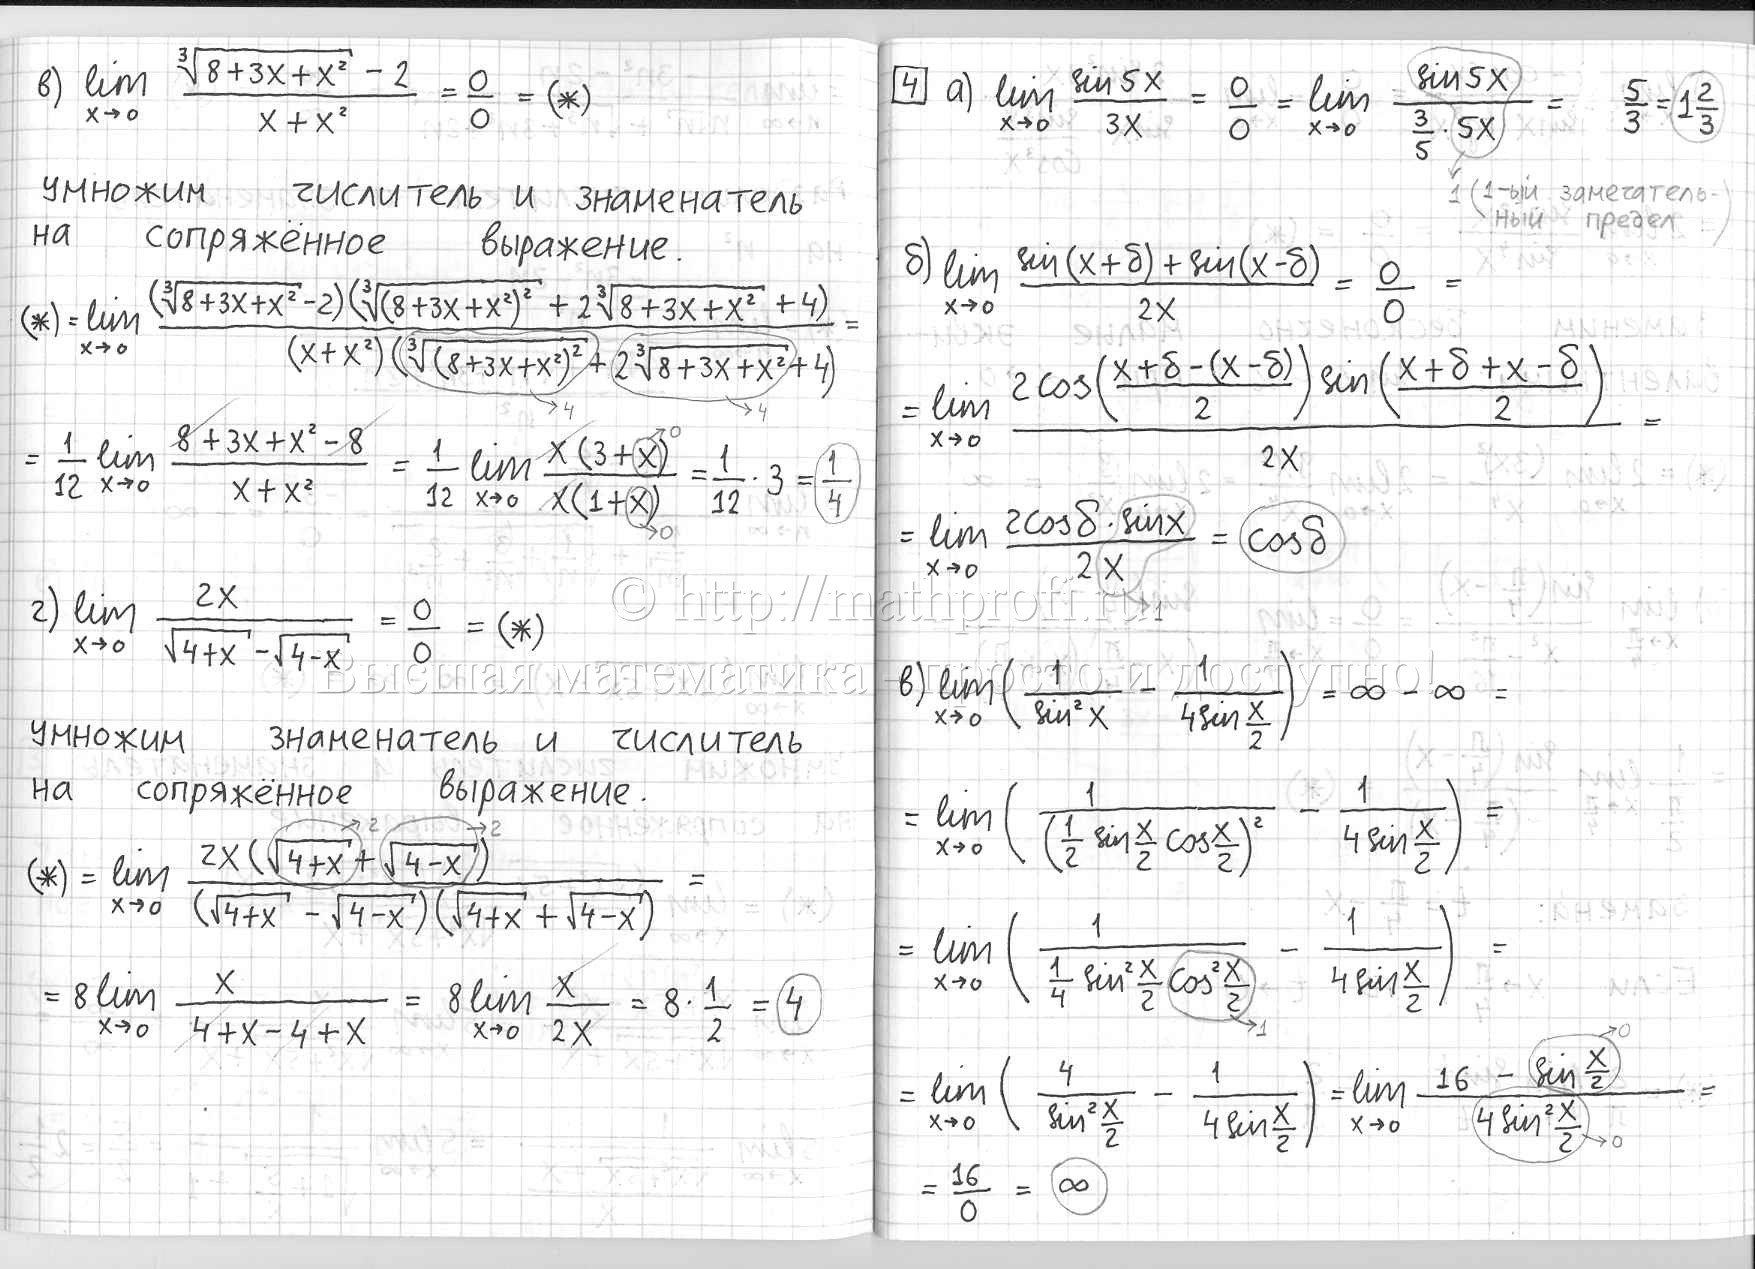 в) lim x→0 (∛(8+3x+x²) − 2)/(x + x²) = 0/0 = (*)
умножим числитель и знаменатель
на сопряжённое выражение.
(*) = lim x→0 ((∛(8+3x+x²) − 2)(∛(8+3x+x²)² + 2∛(8+3x+x²) + 4))/((x+x²)(∛(8+3x+x²)² + 2∛(8+3x+x²) + 4)) =
→4 →4
= 1/12 lim x→0 (8+3x+x²−8)/(x+x²) = 1/12 lim x→0 (x(3+x))/(x(1+x)) = 1/12 · 3 = 1/4
→0 →0
г) lim x→0 2x/(√(4+x) − √(4−x)) = 0/0 = (*)
умножим знаменатель и числитель
на сопряжённое выражение.
→2 →2
(*) = lim x→0 (2x(√(4+x) + √(4−x)))/((√(4+x) − √(4−x))(√(4+x) + √(4−x))) =
= 8 lim x→0 x/(4+x−4+x) = 8 lim x→0 x/(2x) = 8 · 1/2 = 4
4 а) lim x→0 sin5x/3x = 0/0 = lim x→0 sin5x/(3/5 · 5x) = 5/3 = 1 2/3
1 (1-ый замечатель-
ный предел)
б) lim x→0 (sin(x+δ) + sin(x−δ))/2x = 0/0 =
= lim x→0 (2cos((x+δ−(x−δ))/2) sin((x+δ+x−δ)/2))/2x =
= lim x→0 (2cosδ · sinx)/2x = cosδ
→1
в) lim x→0 (1/sin²x − 1/(4sin x/2)) = ∞ − ∞ =
= lim x→0 (1/(1/2 sin x/2 cos x/2)² − 1/(4sin x/2)) =
= lim x→0 (1/(1/4 sin² x/2 cos² x/2) − 1/(4sin x/2)) =
→1
= lim x→0 (4/(sin² x/2) − 1/(4sin x/2)) = lim x→0 (16 − sin x/2)/(4sin² x/2) =
→0 →0
= 16/0 = ∞
© http://mathprofi.ru
Высшая математика – просто и доступно!